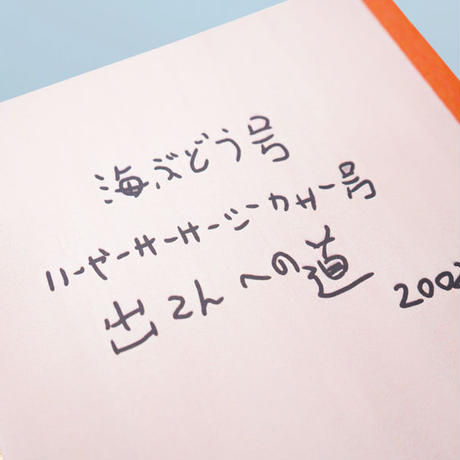 海ぶどう号
ハーヤーサーサーシーカサー号
出てんへの道